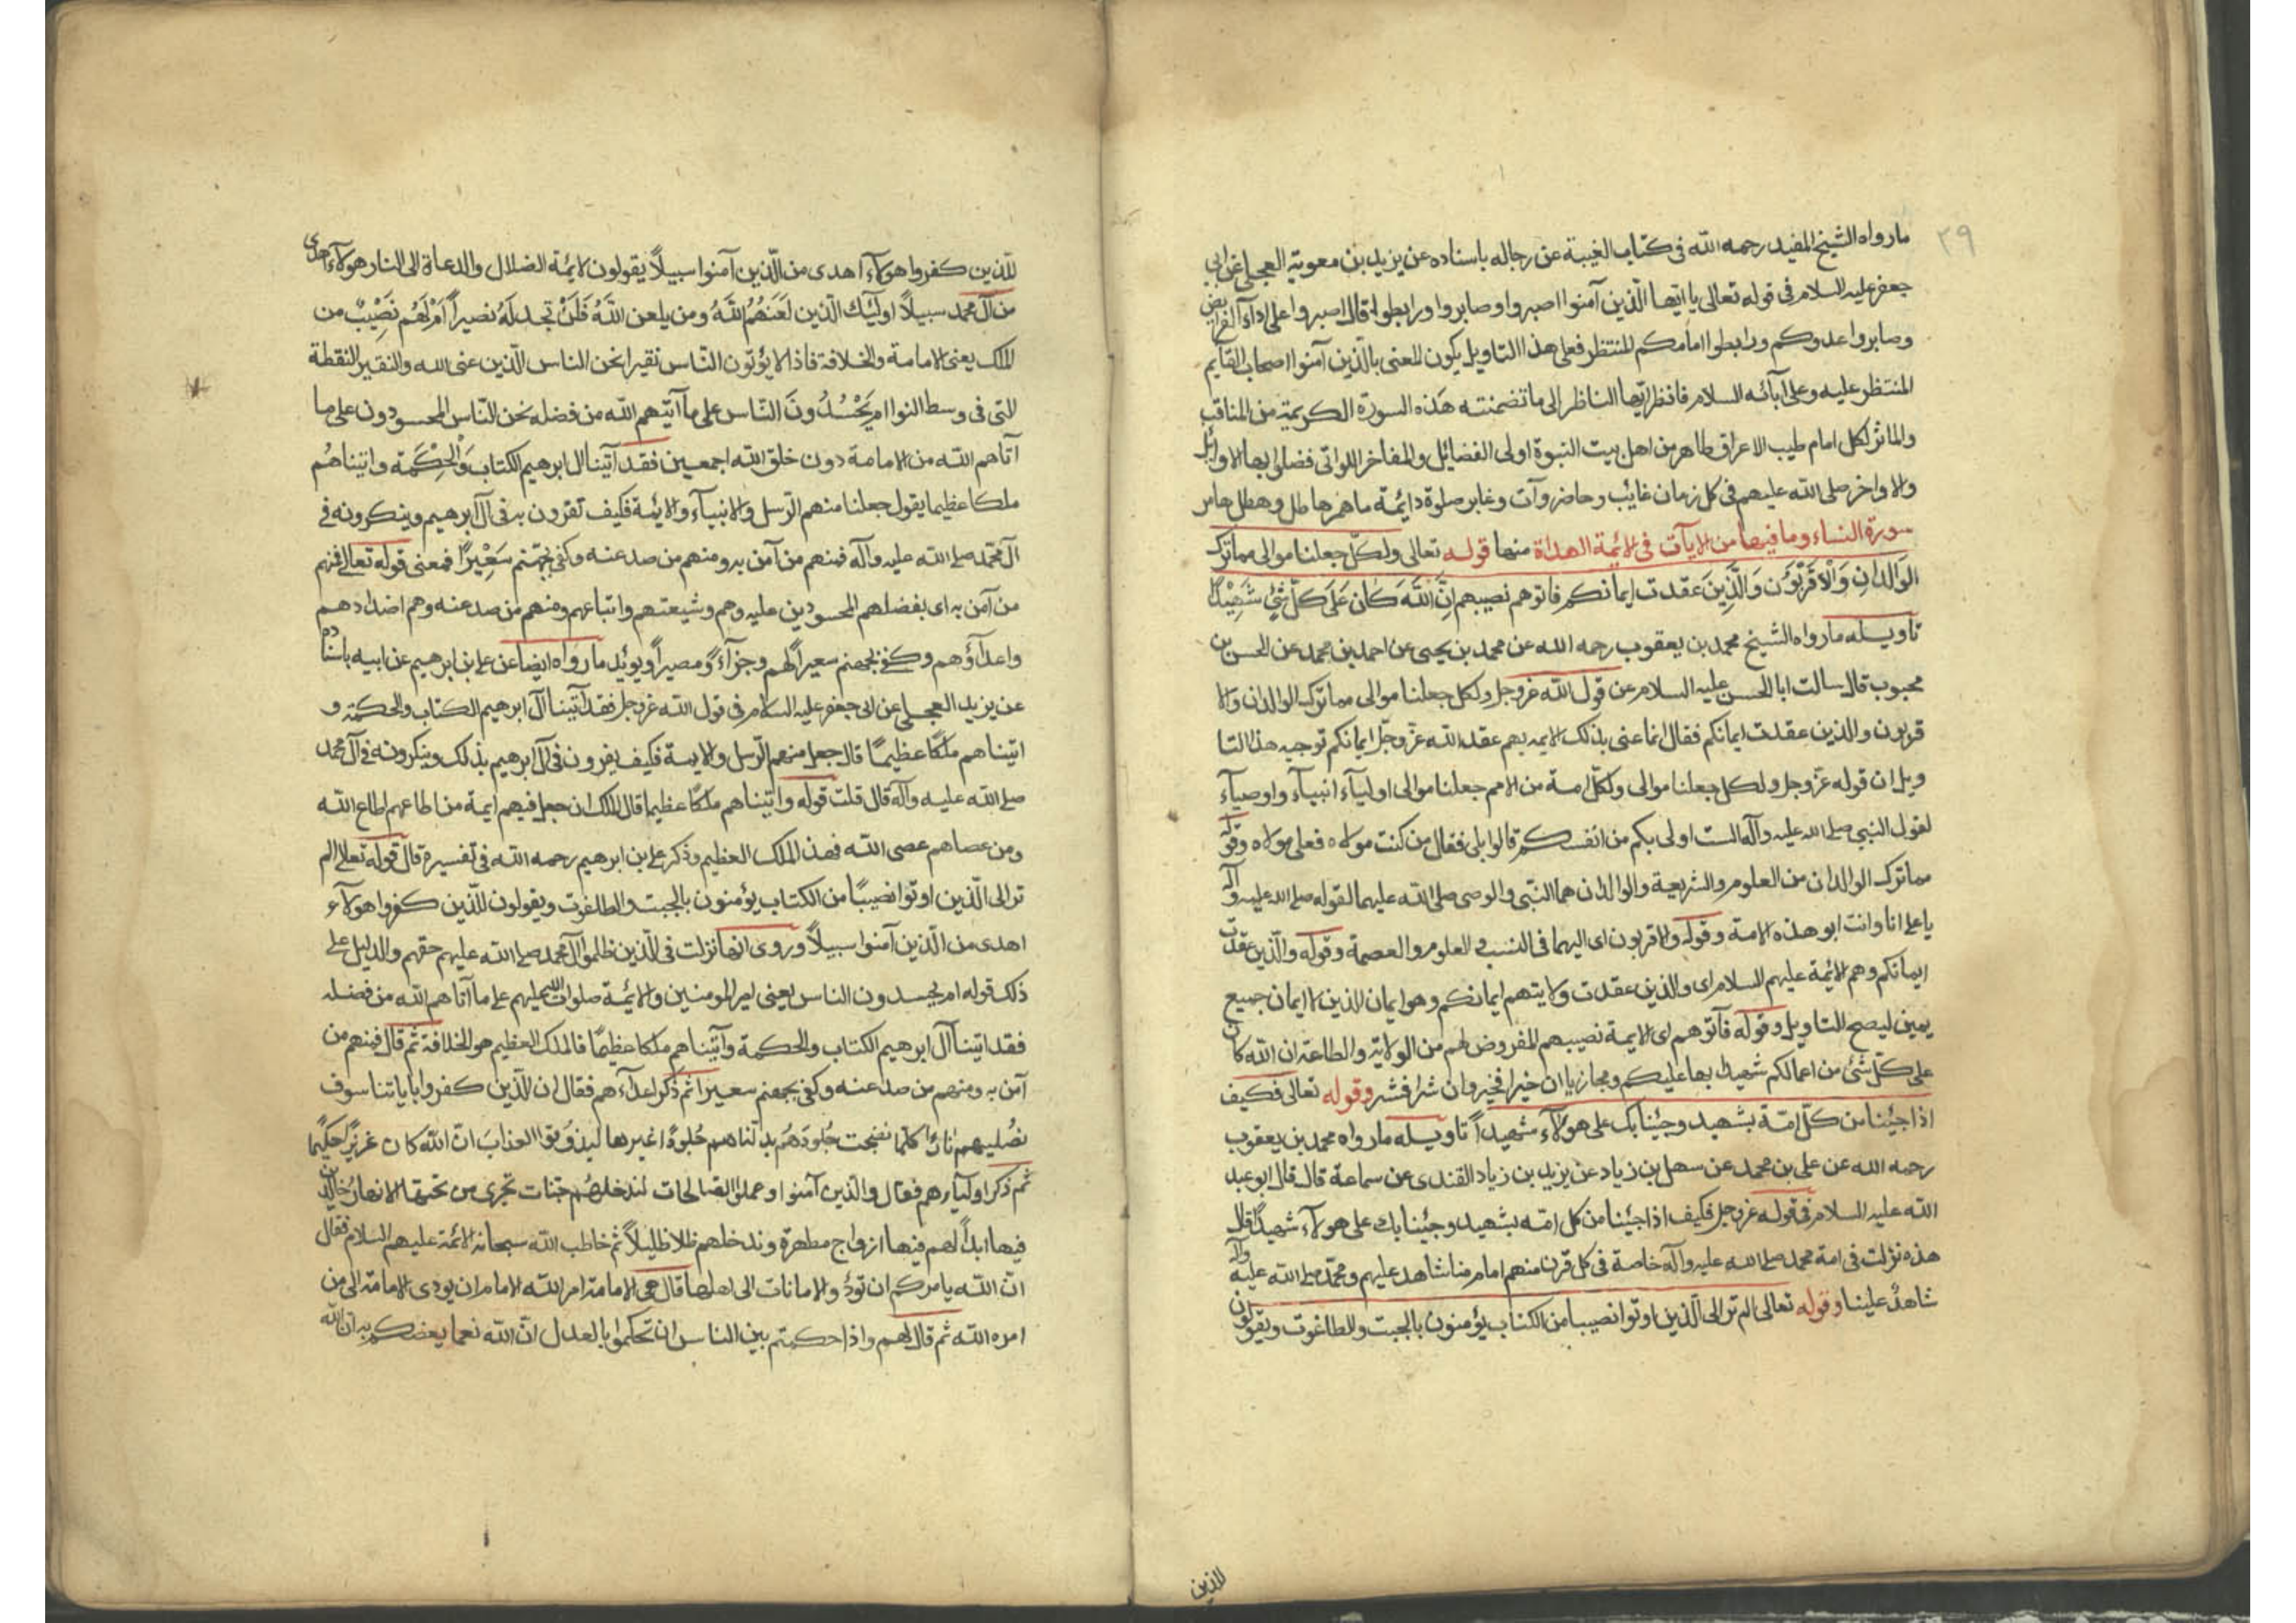 ٣٩
ما رواه الشيخ المفيد رحمه الله فى كتاب الغيبة عن رجاله باسناده عن يزيد بن معوية العجلى عن ابى
جعفر عليه السلام فى قوله تعالى يا ايها الذين آمنوا اصبروا وصابروا ورابطوا قال اصبروا على اداء الفرايض
وصابروا عدوكم ورابطوا امامكم المنتظر فعلى هذا التاويل يكون المعنى بالذين آمنوا اصحاب القايم
المنتظر عليه وعلى آبائه السلام فانظر ايها الناظر الى ما تضمنته هذه السورة الكريمة من المناقب
والماثر لكل امام طيب الاعراق طاهر من اهل بيت النبوة اولى الفضائل والمفاخر اللواتى فضلوا بها الاوائل
والاواخر صلى الله عليهم فى كل زمان غايب وحاضر وآت وغابر صلوة دائمة ما همر هاطل وهطل هامر
سورة النساء وما فيها من الايآت فى الائمة الهداة منها قوله تعالى ولكل جعلنا موالى مما ترك
الوَالدانِ وَالْاَقْرَبُونَ وَالَّذِينَ عقدت ايمانكم فاتوهم نصيبهم اِنَّ اللّهَ كَانَ عَلَى كلّ شَئٍ شَهِيْدًا
تاويله ما رواه الشيخ محمد بن يعقوب رحمه الله عن محمد بن يحيى عن احمد بن محمد عن الحسن بن
محبوب قال سالت ابا الحسن عليه السلام عن قول الله عز وجل ولكل جعلنا موالى مما ترك الوالدان والا
قربون والذين عقدت ايمانكم فقال انما عنى بذلك الايمه بهم عقد الله عز وجلّ ايمانكم توجيه هذا التا
ويل ان قوله عزّ وجل ولكل جعلنا موالى ولكلّ امة من الامم جعلنا موالى اوليآء انبيآء واوصيآء
لقول النبى صلى الله عليه وآله الست اولى بكم من انفسكم قالوا بلى فقال من كنت مولاه فعلى مولاه وقوله
مما ترك الوالدان من العلوم والشريعة والوالدان هما النبى والوصى صلى الله عليهما لقوله صلى الله عليه وآله
يا على انا وانت ابو هذه الامة وقوله والاقربون اى اليهما فى النسب والعلوم والعصمة وقوله والذين عقدت
ايمانكم وهم الائمة عليهم السلام اى والذين عقدت ولايتهم ايمانكم وهو ايمان الدين لا ايمان جميع
يمين ليصح التاويل وقوله فآتوهم اى الايمة نصيبهم المفروض لهم من الولاية والطاعة ان الله كان
على كلّ شئ من اعمالكم شهيدا بها عليكم ومجازيا ان خيرا فخير وان شرا فشر وقوله تعالى فكيف
اذا جئنا من كلّ امّة بشهيد وجئنا بك على هولآء شهيداً تاويله ما رواه محمد بن يعقوب
رحمه الله عن على بن محمد عن سهل بن زياد عن يزيد بن زياد القندى عن سماعة قال قال ابو عبد
الله عليه السلام فى قوله عز وجل فكيف اذا جئنا من كل امّه بشهيد وجئنا بك على هولآء شهيدًا قال
هذه نزلت فى امة محمد صلى الله عليه وآله خاصة فى كل قرن منهم امام منا شاهد عليهم ومحمّد صلى الله عليه وآله
شاهدٌ علينا وقوله تعالى الم تر الى الذين اوتوا نصيبا من الكتاب يؤمنون بالجبت والطاغوت ويقولون
للذين
للّذين كفروا هولآء اهدى من الّذين آمنوا سبيلاً يقولون لايمّة الضلال والدعاة الى النار هولآء اهدى
من آل محمد سبيلاً اولئك الّذين لَعَنَهُمُ اللهُ ومن يلعن اللهُ فَلَنْ تجد لَهُ نصيراً اَمْ لَهُم نَصِيْبٌ من
الملك يعنى الامامة والخلافة فاذا لا يؤتون النّاس نقيرا نحن الناس الّذين عنى الله والنقير النقطة
التى فى وسط النوا ام يَحْسُدُونَ النّاس على ما آتيهم الله من فضله نحن النّاس المحسودون على ما
آتاهم الله من الامامة دون خلق الله اجمعين فقد آتينا آل ابرهيم الكتاب وَالْحِكْمَة واتيناهُم
ملكا عظيما يقول جعلنا منهم الرّسل والانبيآء والائمة فكيف تقرّون به فى آل ابرهيم وينكرونه فى
آل محمّد صلى الله عليه وآله فمنهم من آمن به ومنهم من صد عنه وكفى بجهنّم سَعِيْرًا فمعنى قوله تعالى فمنهم
من آمن به اى بفضلهم المحسودين عليه وهم وشيعتهم واتباعهم ومنهم من صد عنه وهم اضدادهم
واعدآؤهم وكفى بجهنم سعيراً لهم وجزآءً ومصيراً ويؤيد ما رواه ايضا عن على بن ابرهيم عن ابيه باسناده
عن يزيد العجلى عن ابى جعفر عليه السلام فى قول الله عز وجل فقد آتينا آل ابرهيم الكتاب والحكمة و
اتيناهم ملكًا عظيمًا قال جعل منهم الرّسل والايمة فكيف يقرون فى آل ابرهيم بذلك وينكرونه فى آل محمد
صلى الله عليه وآله قال قلت قوله واتيناهم ملكًا عظيما قال الملك ان جعل فيهم ايمة من اطاعهم اطاع الله
ومن عصاهم عصى الله فهذا الملك العظيم وذكر على بن ابرهيم رحمه الله فى تفسيره قال قوله تعالى الم
تر الى الّذين اوتوا نصيبًا من الكتاب يؤمنون بالجبت والطاغوت ويقولون للذين كفروا هولآء
اهدى من الّذين آمنوا سبيلاً وروى انها نزلت فى الّذين ظلموا آل محمد صلى الله عليهم حقهم والدليل على
ذلك قوله ام يحسدون الناس يعنى امير المومنين والائمة صلوات الله عليهم على ما آتاهم الله من فضله
فقد اتينا آل ابرهيم الكتاب والحكمة وآتيناهم ملكا عظيمًا فالملك العظيم هو الخلافة ثم قال فمنهم من
آمن به ومنهم من صد عنه وكفى بجهنم سعيرا ثم ذكر اعدآءهم فقال ان الّذين كفروا باياتنا سوف
نصُليهم نارًا كلّما نضجت جُلودهُم بدلناهم جُلودًا غيرها ليذوقوا العذابَ انّ الله كان عزيزًا حكيمًا
ثم ذكر اوليآءهم فقال والذين آمنوا وعملوا الصالحات لندخلهُم جنات تجرى من تحتها الانهار خالدين
فيها ابداً لهم فيها ازواج مطهرة وندخلهم ظلا ظليلاً ثم خاطب الله سبحانه الائمة عليهم السلام فقال
انّ الله يامركم ان تؤدّوا الامانات الى اهلها قال هى الامامة امر الله الامام ان يودى الامامة الى من
امره الله ثم قال لهم واذا حكمتم بين الناس ان تحكموا بالعدل انّ الله نعما يعضكم به ان الله